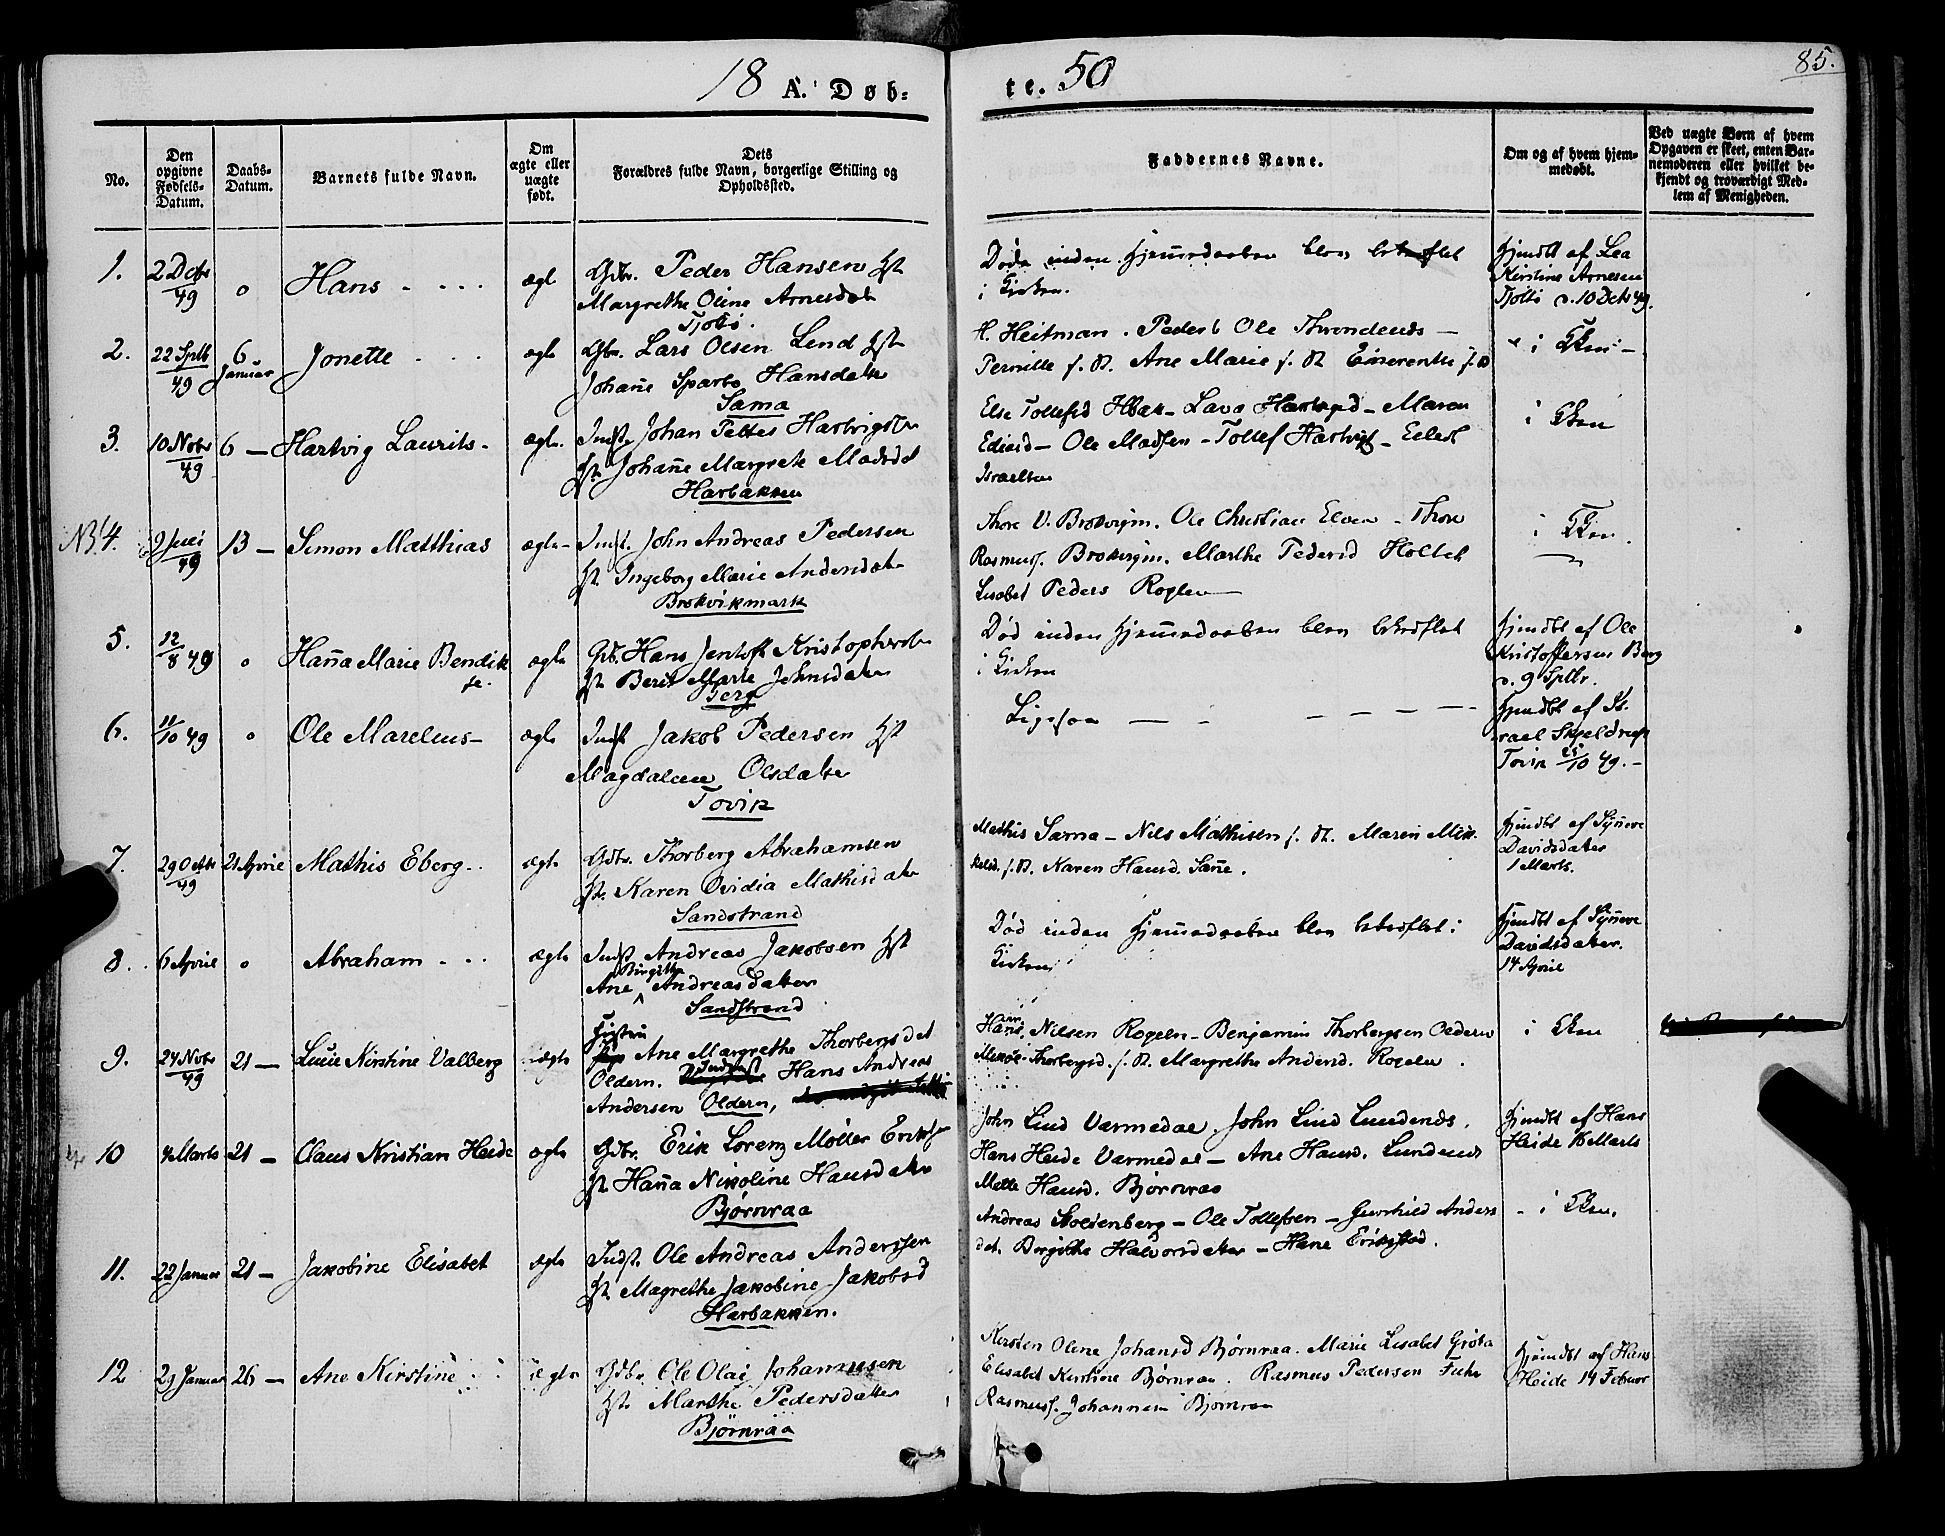 18 A. Døb-
te. 50
85.
No.
Den opgivne Fødsels-Datum.
Daabs-Datum.
Barnets fulde Navn.
Om ægte eller uægte født.
Dets Forældres fulde Navn, borgerlige Stilling og Opholdssted.
Faddernes Navne.
Om og af hvem hjem-medøbt.
Ved uægte Børn af hvem Opgaven er skeet, enten Bar-nemoderen eller hvilket be-kjendt og troværdigt Med-lem af Menigheden.
1. 2 Debr 49 o Hans ægte Gdbr. Peder Hansen Hst
Margrethe Oline Arnesdat
Tjøtø.
Døde inden Hjemmedaaben blev bekræftet
i Kirken.
Hjmdbt af Lea
Kirstine Arnesen
Tjøttø d. 10 Debr 49.
2. 22 Sptb 49 6 Januar Jonette ægte Gbr. Lars Olsen Lend Hst
Johañe Sparbo Hansdatr
Sama
H. Heitman. Peder Ole Throndends —
Pernille s. St. Ane Marie s. St.
i Kken —
3. 10 Novbr 49 6 — Hartvig Laurits ægte. Indst Johan Peder Hartvigsen
Hst. Johañe Margrete Madsdat
Harbakken
Else Tollefsd Hbak - Lava Hartvigsd - Maren
Ole Madsen - Tollef Hartvigs -
Israelsen
i Kken
NB 4. 9 Juli 49 13 — Simon Matthias ægte Indst. John Andreas Pedersen
Hst. Ingeborg Marie Andersdatr
Brokvikmark
Thore Brokvigm. Ole Christian Elven - Thore
Rasmuss. Brokvigm. Marthe Pedersd Holtet
Lisabet Peders Roglen
i Kken.
5. 12/8 49 o Hañna Marie Bendik ægte Gdb. Hans Jentoft Kristophersen
Hst Berit Marte Johnsdatr
Berg
Død inden Hjemmedaaben blev bekræftet
i Kirken
Hjmdbt af Ole
Kristoffersen Berg
d. 9 Sptbr.
6. 11/10 49 o Ole Marelius ægte Indst Jakob Pedersen Hst
Magdalene Olsdatr
Tovik
Ligesaa — — — — —
Hjmdbt af Is-
rael Skjeldrup
Tovik 25/10 49. —
7. 29 Octbr 49 21 April Mathis Eberg ægte Gdbr. Thorberg Abrahamsen
Hst. Karen Ovidia Mathisdatr
Sandstrand
Mathis Sama - Nils Mathisen s. St. Maren Mik-
kelsd. s. St. Karen Hansd. Same.
Hjmdbt af Syñeve
Davidsdatter
1 Marts.
8. 6 April o Abraham ægte Indst Andreas Jakobsen Hst
Ane Birgitte Andreasdatter
Sandstrand
Død inden Hjemmedaaben blev bekræftet i
Kirken
Hjmdbt af Syñeve
Davidsdatter.
14 April
9. 24 Novbr 49 21 — Lucie Kirstine Valberg ægte Ane Margrethe Thorbergsdat
Oldern. Indst Hans Andreas
Andersen Oldern,
Hans Nilsen Rogeln - Benjamin Thorbergsen Oldern
Thorbergsd. s. St. Margrethe Andersd. Rogeln.
i Kken
10 4 Marts 21 — Claus Kristian Heide ægte Gdbr. Erik Lorens Møller Eriks
Hst Hañna Nikoline Hansdatr
Bjørnraa
John Lind Varmedal. John Lind Lundends.
Hans Heide Varmedal — Ane Hansd. Lundends
Mette Hansd. Bjørnraa
Hjmdbt af Hans
Heide Marts
11. 22 Januar 21 — Jakobine Elisabet ægte Indst. Ole Andreas Anderssen
Hst. Magrethe Jakobine Jakobsd
Harbakken.
Andreas Stoltenberg - Ole Tollefsen - Gunhild Anders
dat. Birgitte Halvorsdatter -
i Kken.
12 29 Januar 26 — Ane Kirstine ægte Gdbr. Ole Olai Johannesen
Hst. Marthe Pedersdatter
Bjørnraa
Kirsten Oline Johansd Bjørnraa. Marie Lisabet Grøta
Elisabet Kirstine Bjørnraa. Rasmus Pedersen
Rasmuss. Johannes Bjørnraa
Hjmdbt af Hans
Heide 14 Februar